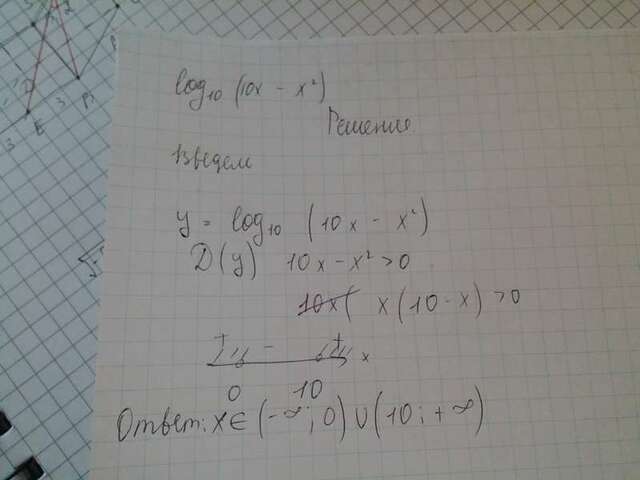 log₁₀ (10x - x²)
Решение
Введем
y = log₁₀ (10x - x²)
D(y) 10x - x² > 0
10x( x(10 - x) > 0
+ - + x
0 10
Ответ: x ∈ (-∞; 0) ∪ (10; +∞)